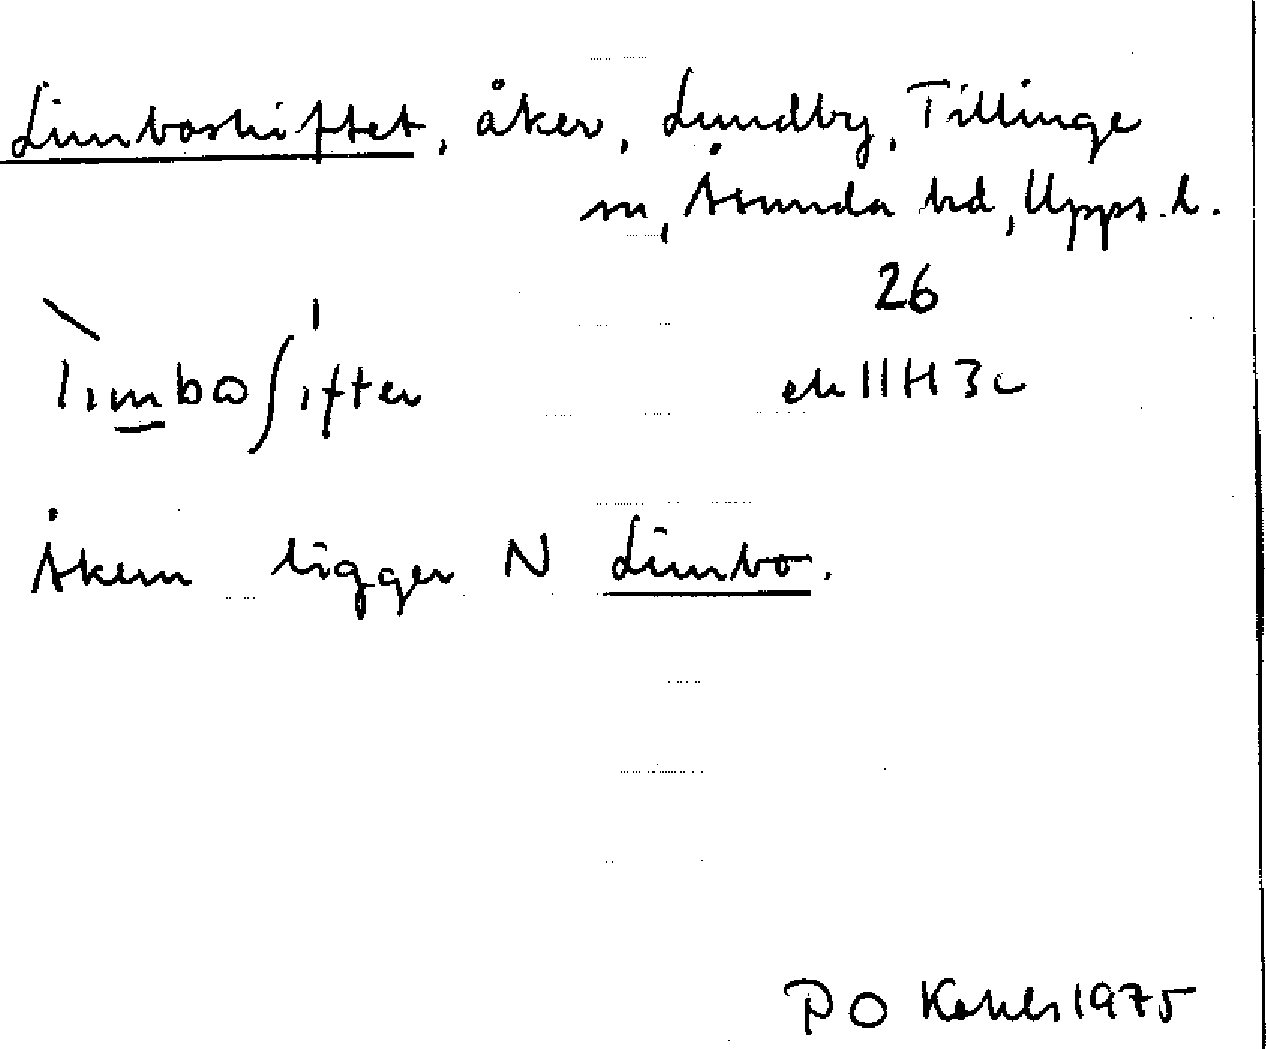 Limboskiftet, åker, Lundby, Tillinge
sn, Åsunda hd, Upps. l.
26
limboʃiftev
ek 11H3c
Åkern ligger N Limbo.
P O 1975